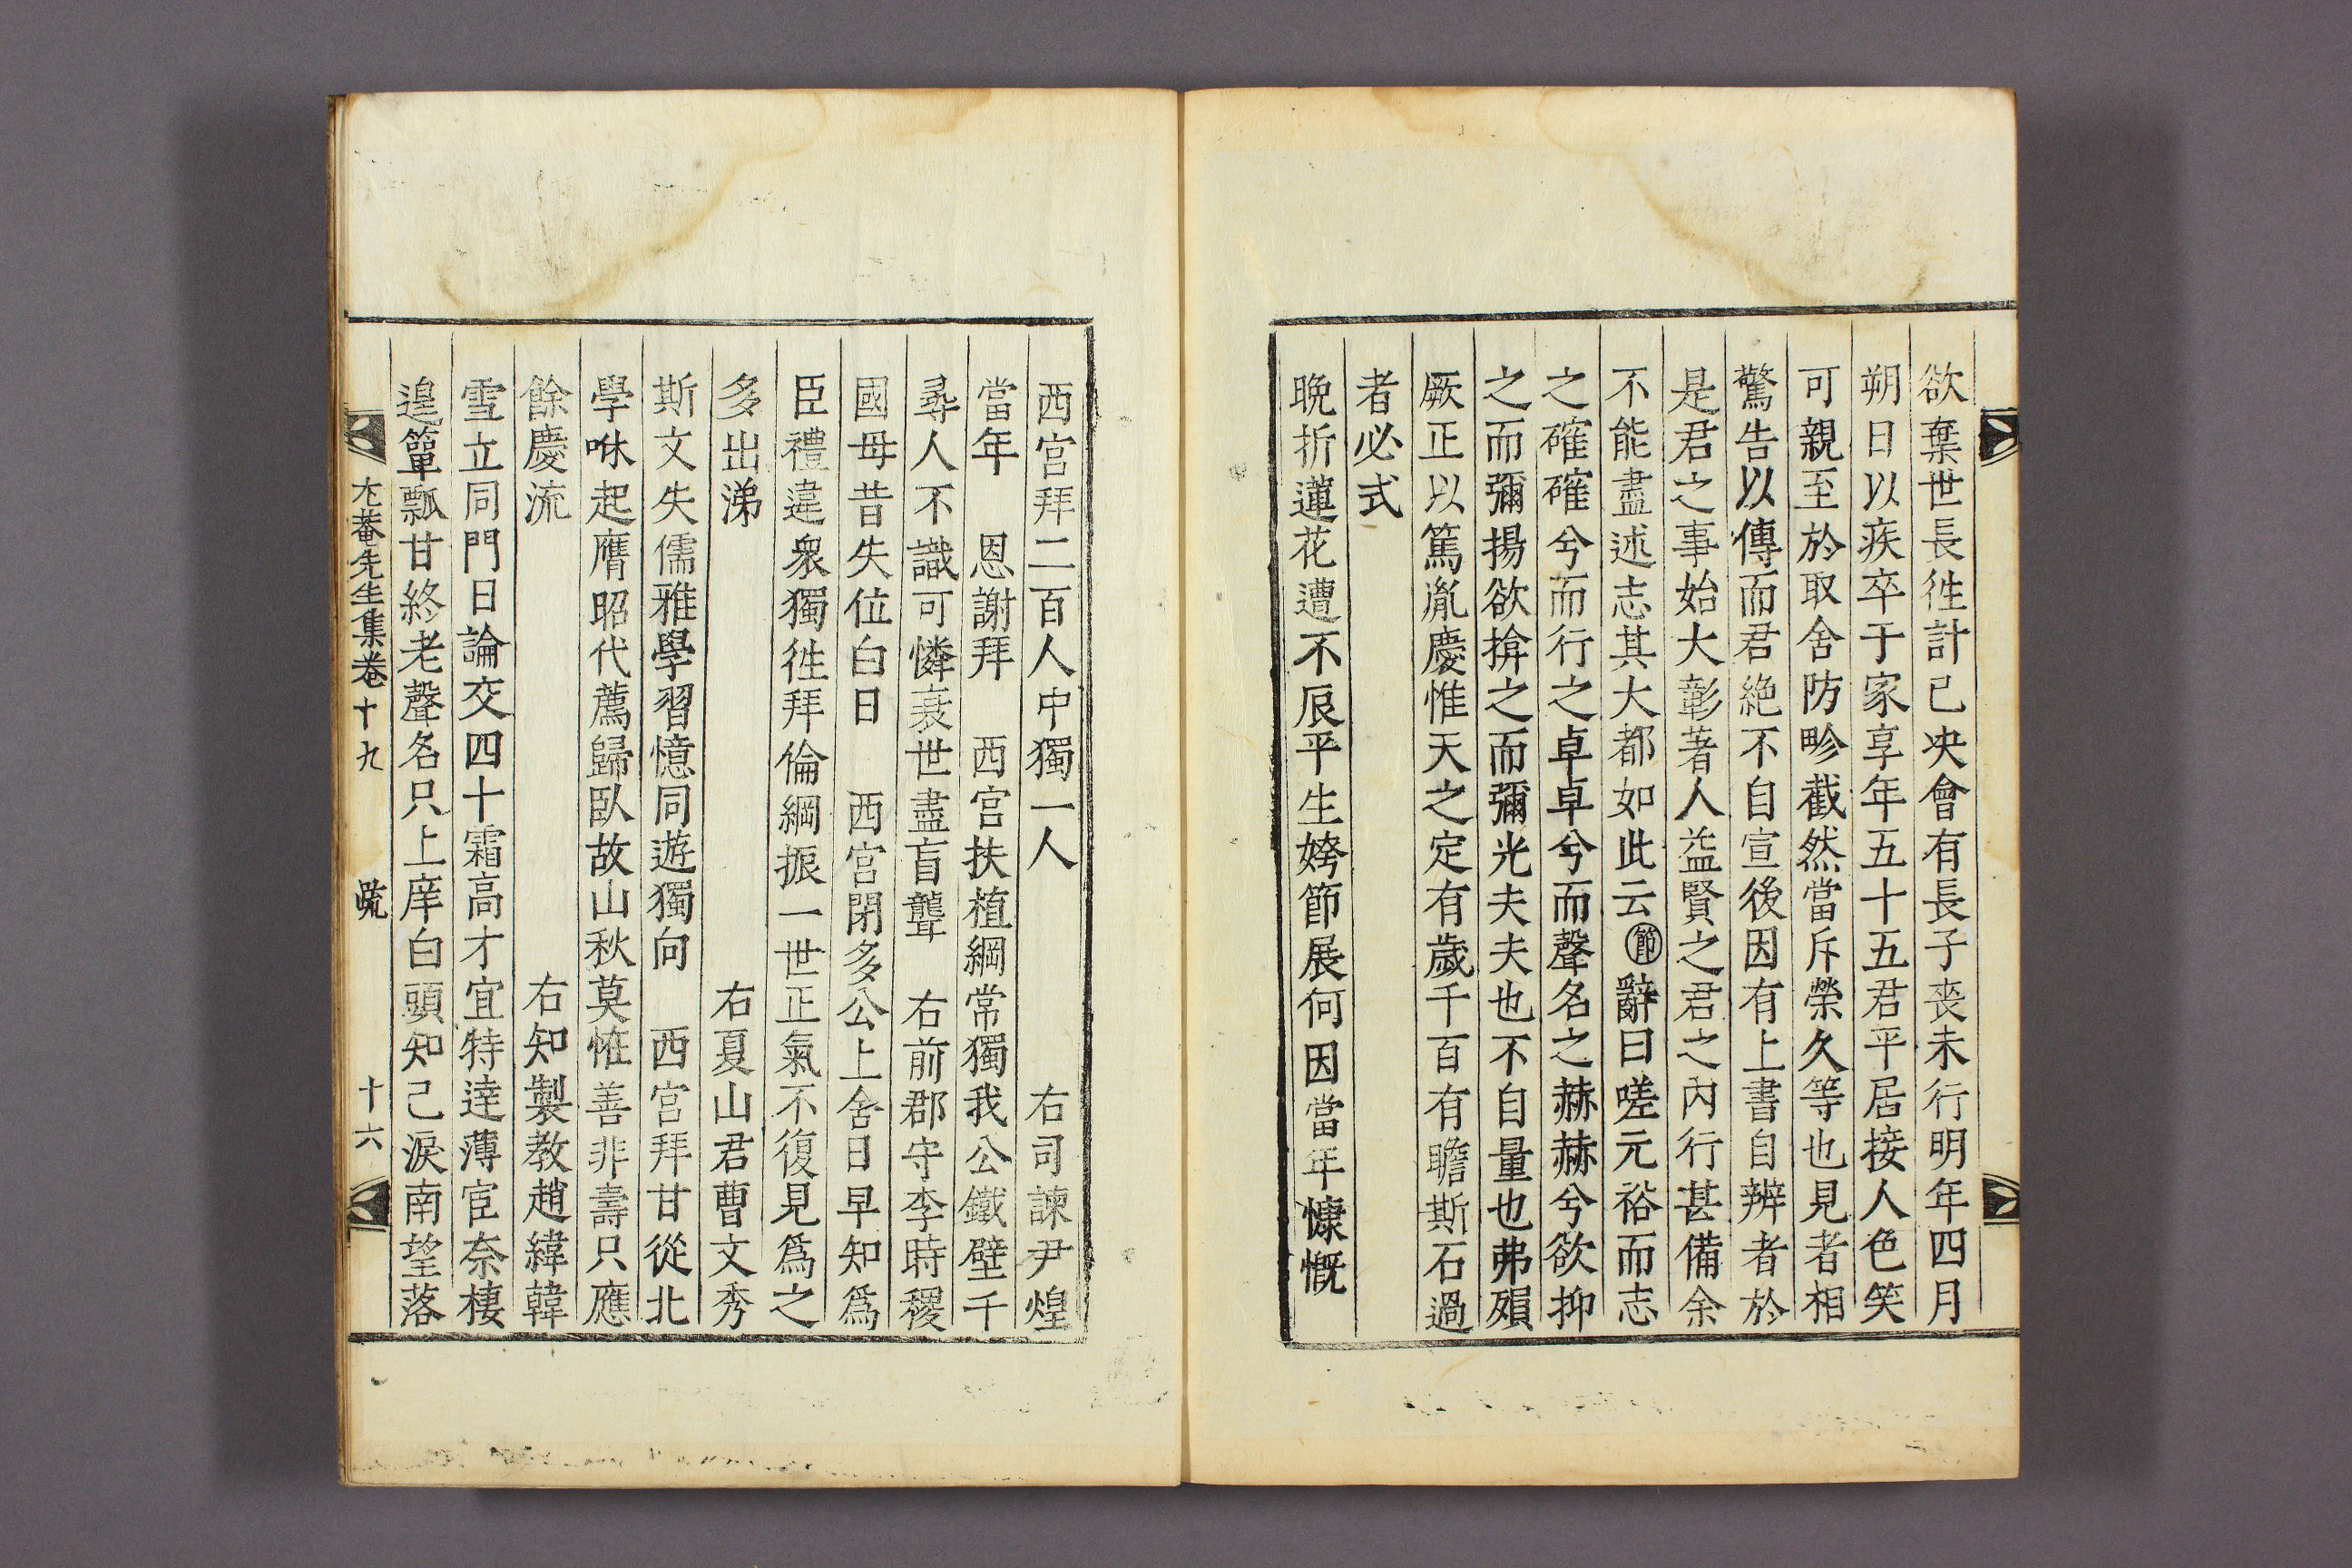 欲棄世長徃計已决會有長子喪未行明年四月
朔日以疾卒于家享年五十五君平居接人色笑
可親至於取舍防畛截然當斥榮久等也見者相
驚告以傳而君絶不自宣後因有上書自辨者於
是君之事始大彰著人益賢之君之內行甚備余
不能盡述志其大都如此云節辭曰嗟元裕而志
之確確兮而行之卓卓兮而聲名之赫赫兮欲抑
之而彌揚欲揜之而彌光夫夫也不自量也弗殞
厥正以篤胤慶惟天之定有歲千百有瞻斯石過
者必式
晩折蓮花遭不辰平生姱節展何因當年慷慨
西宮拜二百人中獨一人 右司諫尹煌
當年 恩謝拜 西宮扶植綱常獨我公鐵壁千
尋人不識可憐衰世盡盲聾 右前郡守李時稷
國母昔失位白日 西宮閉多公上舍日早知爲
臣禮違衆獨徃拜倫綱振一世正氣不復見爲之
多出涕 右夏山君曹文秀
斯文失儒雅學習憶同遊獨向 西宮拜甘從北
學咻起膺昭代薦歸臥故山秋莫恠善非壽只應
餘慶流 右知製教趙緯韓
雪立同門日論交四十霜高才宜特達薄宦奈棲
遑簞瓢甘終老聲名只上庠白頭知己淚南望落
尤菴先生集卷十九 疏 十六